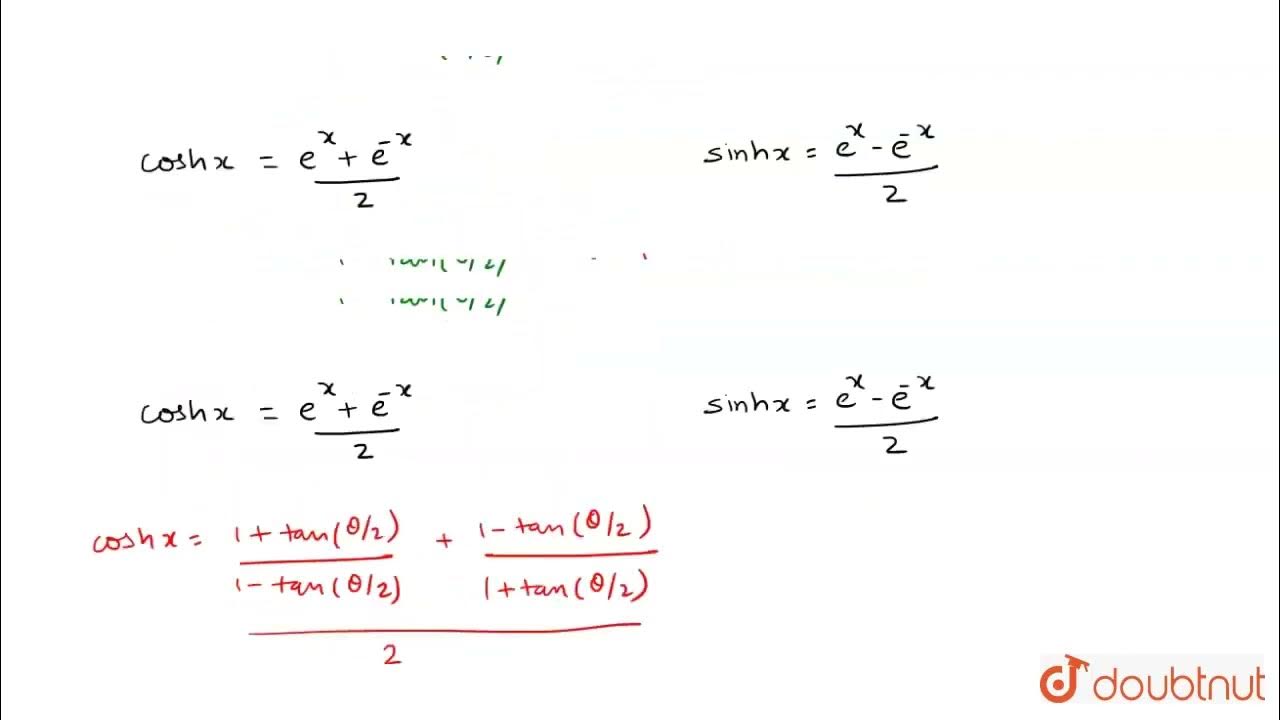 coshx = e^x + e^-x / 2
sinhx = e^x - e^-x / 2
coshx = e^x + e^-x / 2
sinhx = e^x - e^-x / 2
coshx = 1 + tan(θ/2) / 1 - tan(θ/2) + 1 - tan(θ/2) / 1 + tan(θ/2) / 2
doubtnut